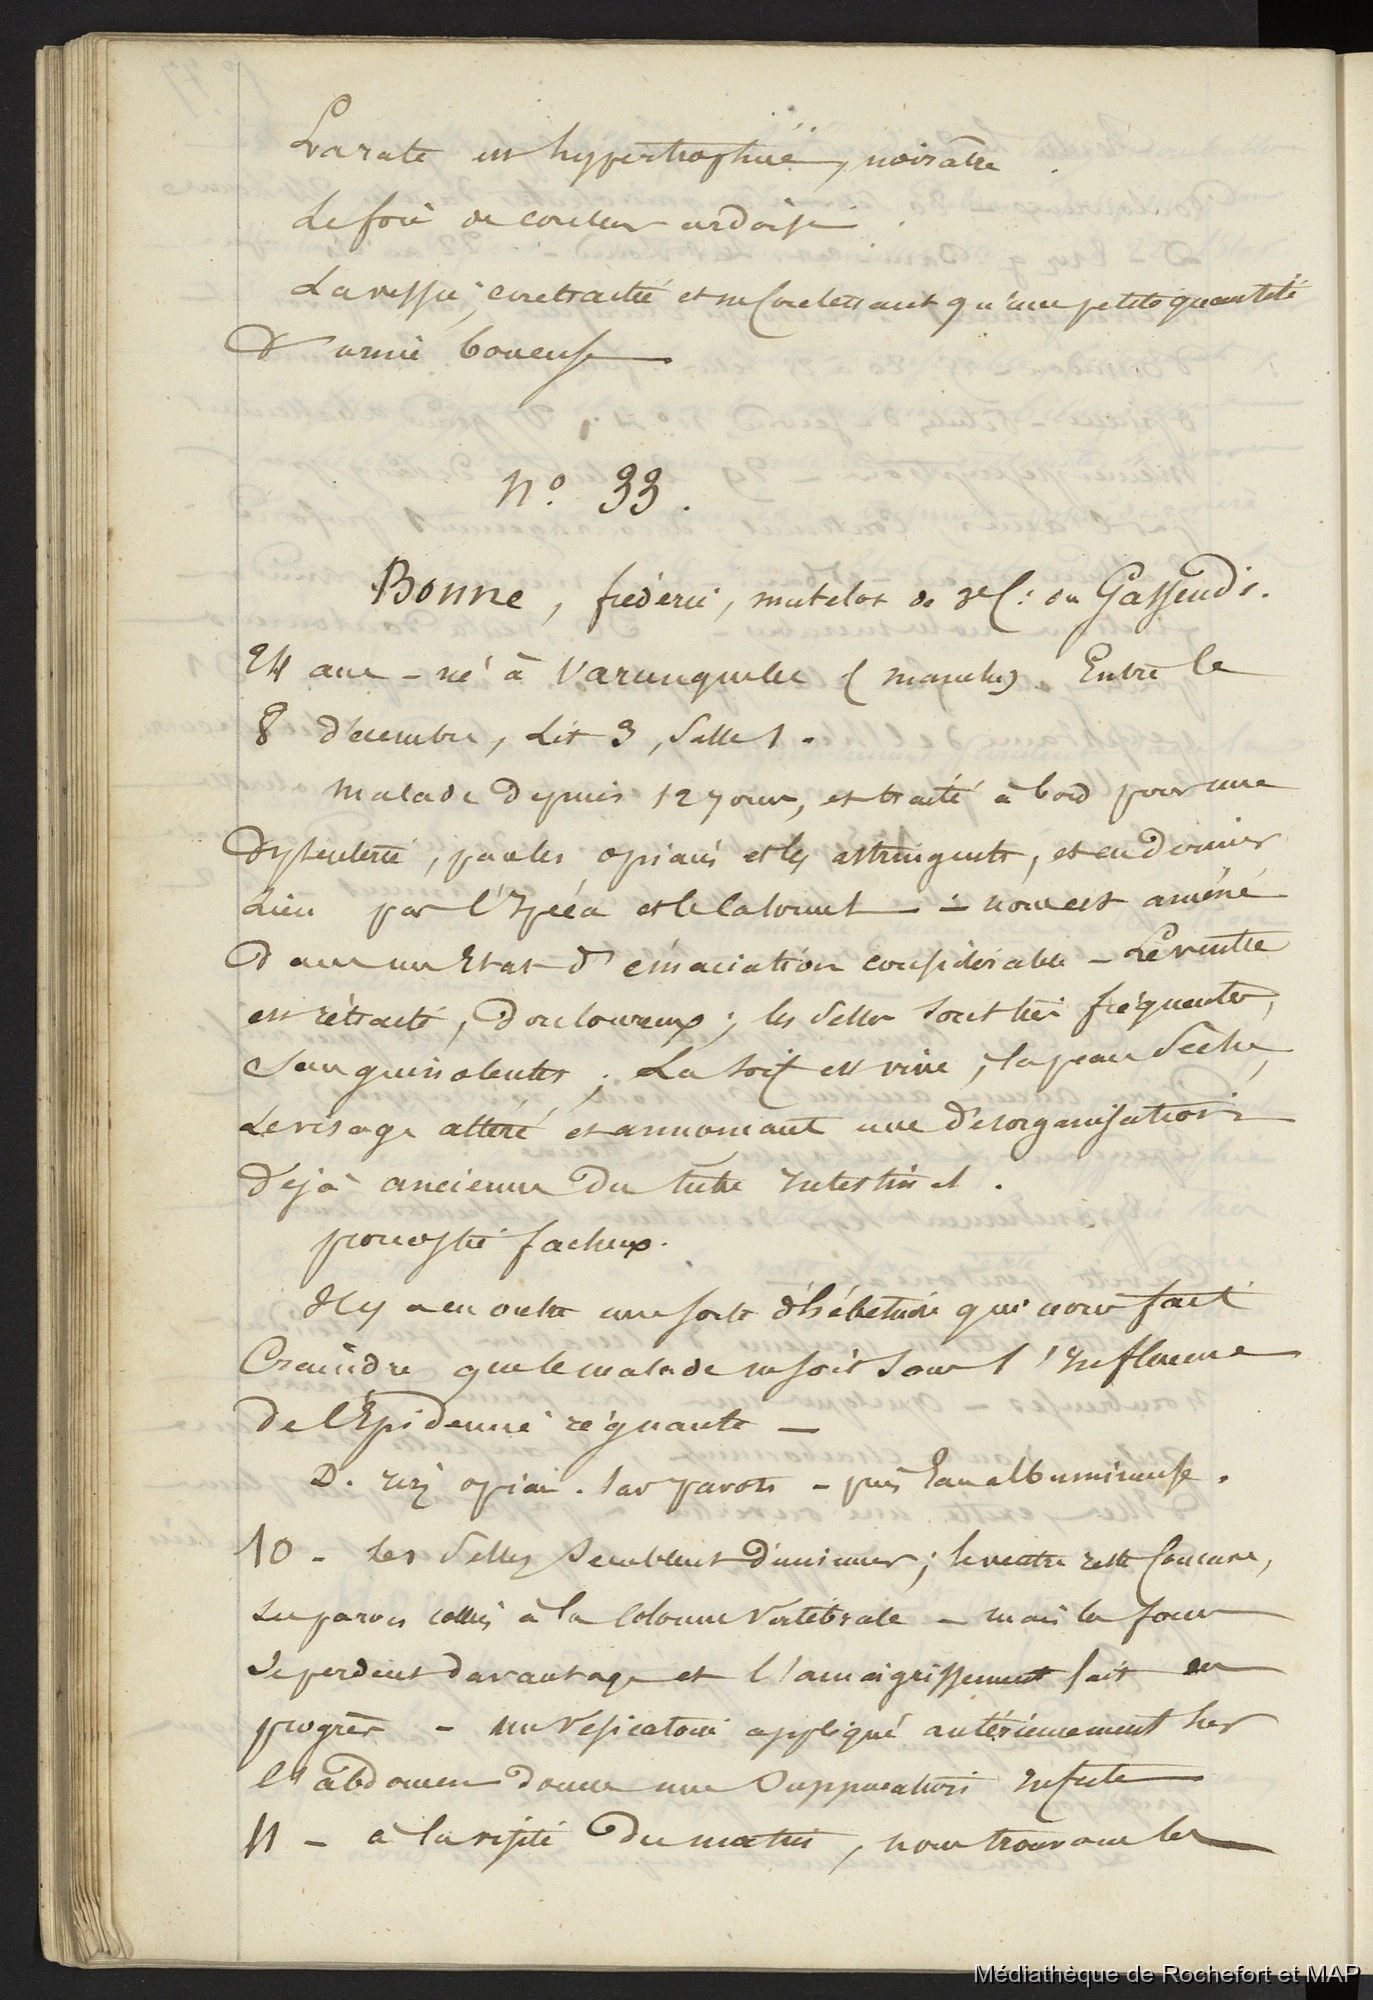 La rate est hypertrophiée, noirâtre.
Le foie de couleur ardoise.
La vessie, contractée et ne contenant qu'une petite quantité
d'urine boueuse
N° 33.
Bonne, frédéric, matelot de 3e Cl: du Gassendi.
24 ans - né à Varanguebec (manche). Entré le
8 décembre, Lit 3, Salle 1.
Malade depuis 12 jours, et traité à bord pour une
Dysenterie, par les opiacés et les astringents, et en dernier
Lieu par l'Ipéca et le calomel - nous est améné
dans un Etat d'émaciation considérable - Le ventre
est rétracté, douloureux; les selles sont très fréquentes,
sanguinolentes; La soif est vive, la peau sèche,
Le visage altéré et annonçant une désorganisation
déjà ancienne du tube Intestinal.
pronostic facheux.
Il y a en outre une sorte d'hébétude qui nous fait
Craindre que le malade ne soit sous l'Influence
de l'Epidémie régnante —
D. riz opiac. lav pavots - pris Eau albumineuse.
10 - Les selles semblent diminuer; le ventre reste concave,
Les parois collées à la colonne vertébrale - mais les forces
se perdent davantage et l'amaigrissement fait des
progrès - un vésicatoire appliqué antérieurement sur
l'abdomen donne une suppuration infecte
11 - à la visite du matin, nous trouvons les
Médiathèque de Rochefort et MAP